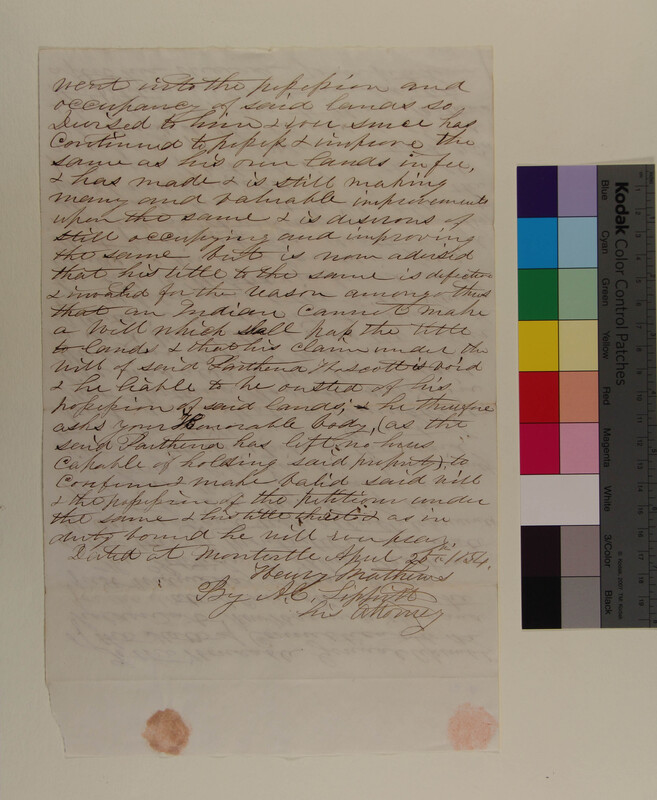 went into the possession and
occupancy of said lands so
devised to him & ever since has
continued to possess & improve the
same as his own lands in fee,
& has made & is still making
many and valuable improvements
upon the same & is desirous of
still occupying and improving
the same but is now advised
that his title to the same is defective
& invalid for the reason among others
that an Indian cannot make
a Will which shall pass the title
to lands & that his claim under the
will of said Parthena Wascott is void
& he liable to be ousted of his
possession of said lands; & he therefore
asks your Honorable body, (as the
said Parthena has left no heirs
capable of holding said property), to
confirm & make valid said will
& the possession of the petitioner under
the same & his title thereto & as in
duty bound he will ever pray.
Dated at Montville April 25th 1854.
Henry Mathews
By A.C. Lippitt
his Attorney
Kodak Color Control Patches
Blue
Cyan
Green
Yellow
Red
Magenta
White
3/Color
Black